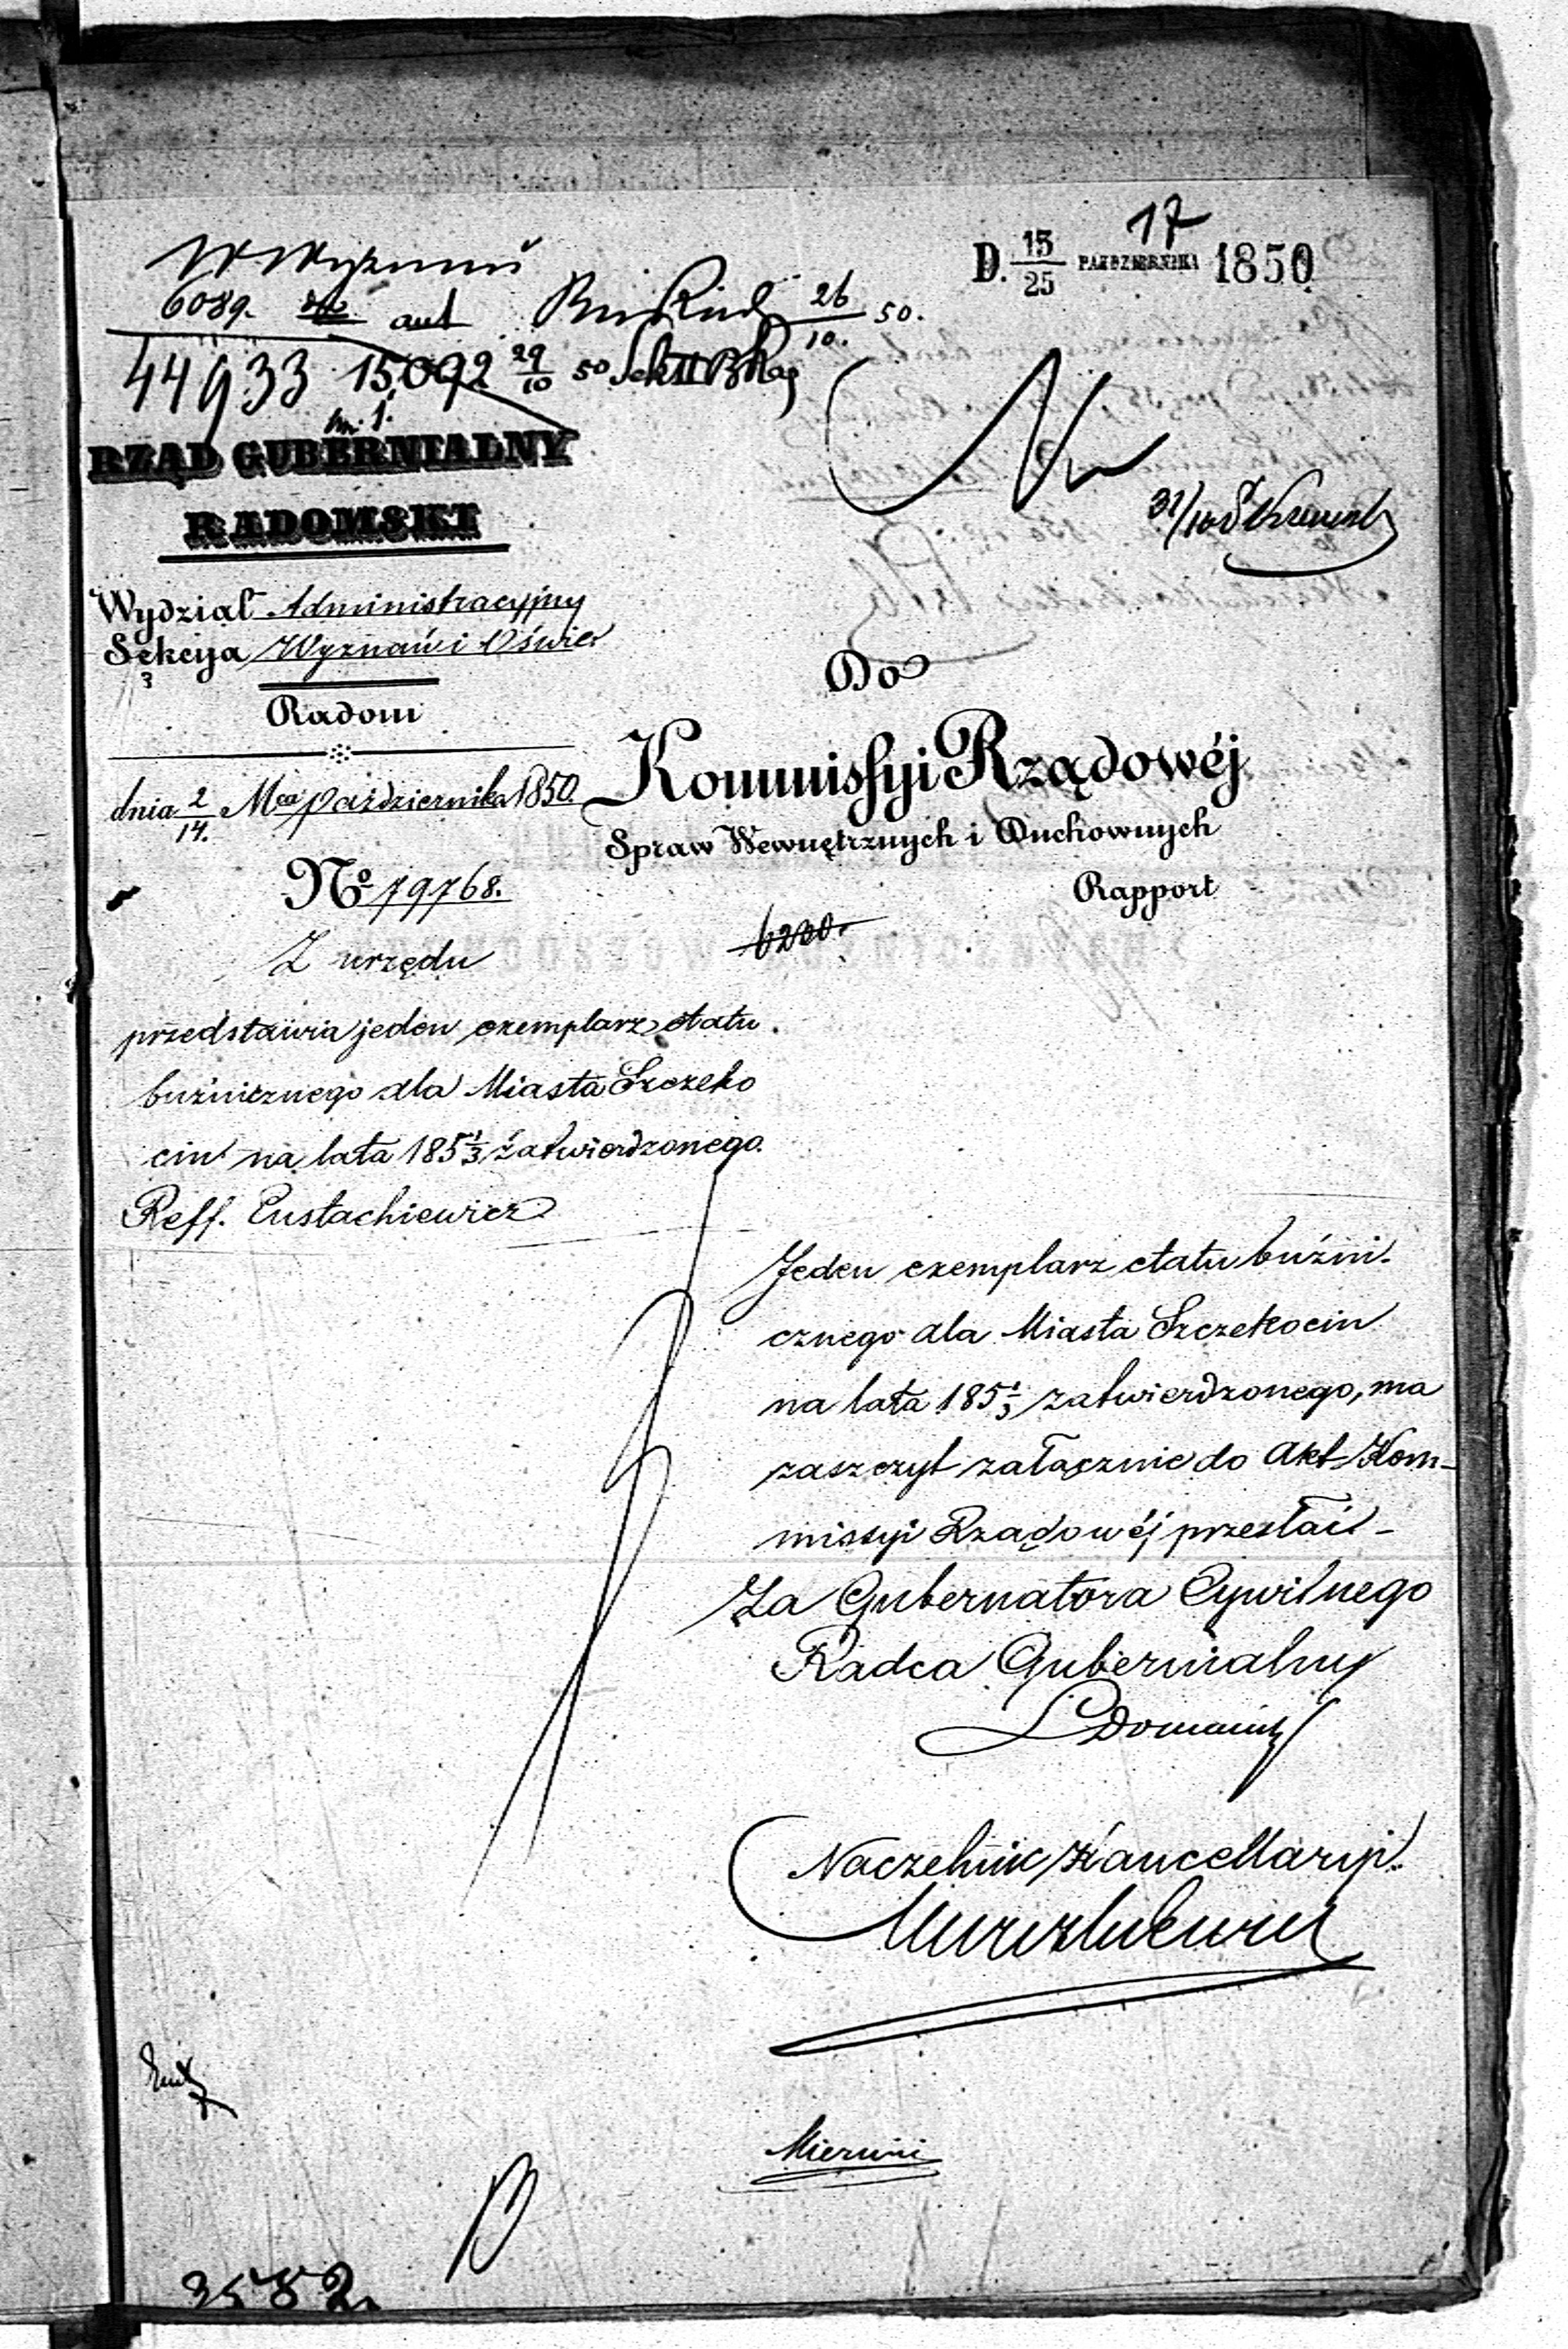 17
D. 15/25 PAŹDZIERNIKA 1850
W Wyznań
6089. aut 26/10. 50.
44933 15092 29/10 50 Sek II
31/10
RZĄD GUBERNIALNY
RADOMSKI
Wydział Administracyjny
Sekcija Wyznań i Oświe.
Radom
dnia 2/14. Mca Października 1850.
No 79768.
Do
Kommissyi Rządowéj
Spraw Wewnętrznych i Duchownych
Rapport
6200.
Z urzędu
przedstawia jeden exemplarz etatu
buźnicznego dla Miasta Szczeko
cin na lata 185 1/3 zatwierdzonego.
Reff. Eustachiewicz
Jeden exemplarz etatu buźni-
cznego dla Miasta Szczekocin
na lata 185 1/3 zatwierdzonego, ma
zaszczyt załącznie do Akt Kom-
missyi Rządowéj przesłać -
Za Gubernatora Cywilnego
Radca Gubernialny
Naczelnik Kancellaryi.
3582